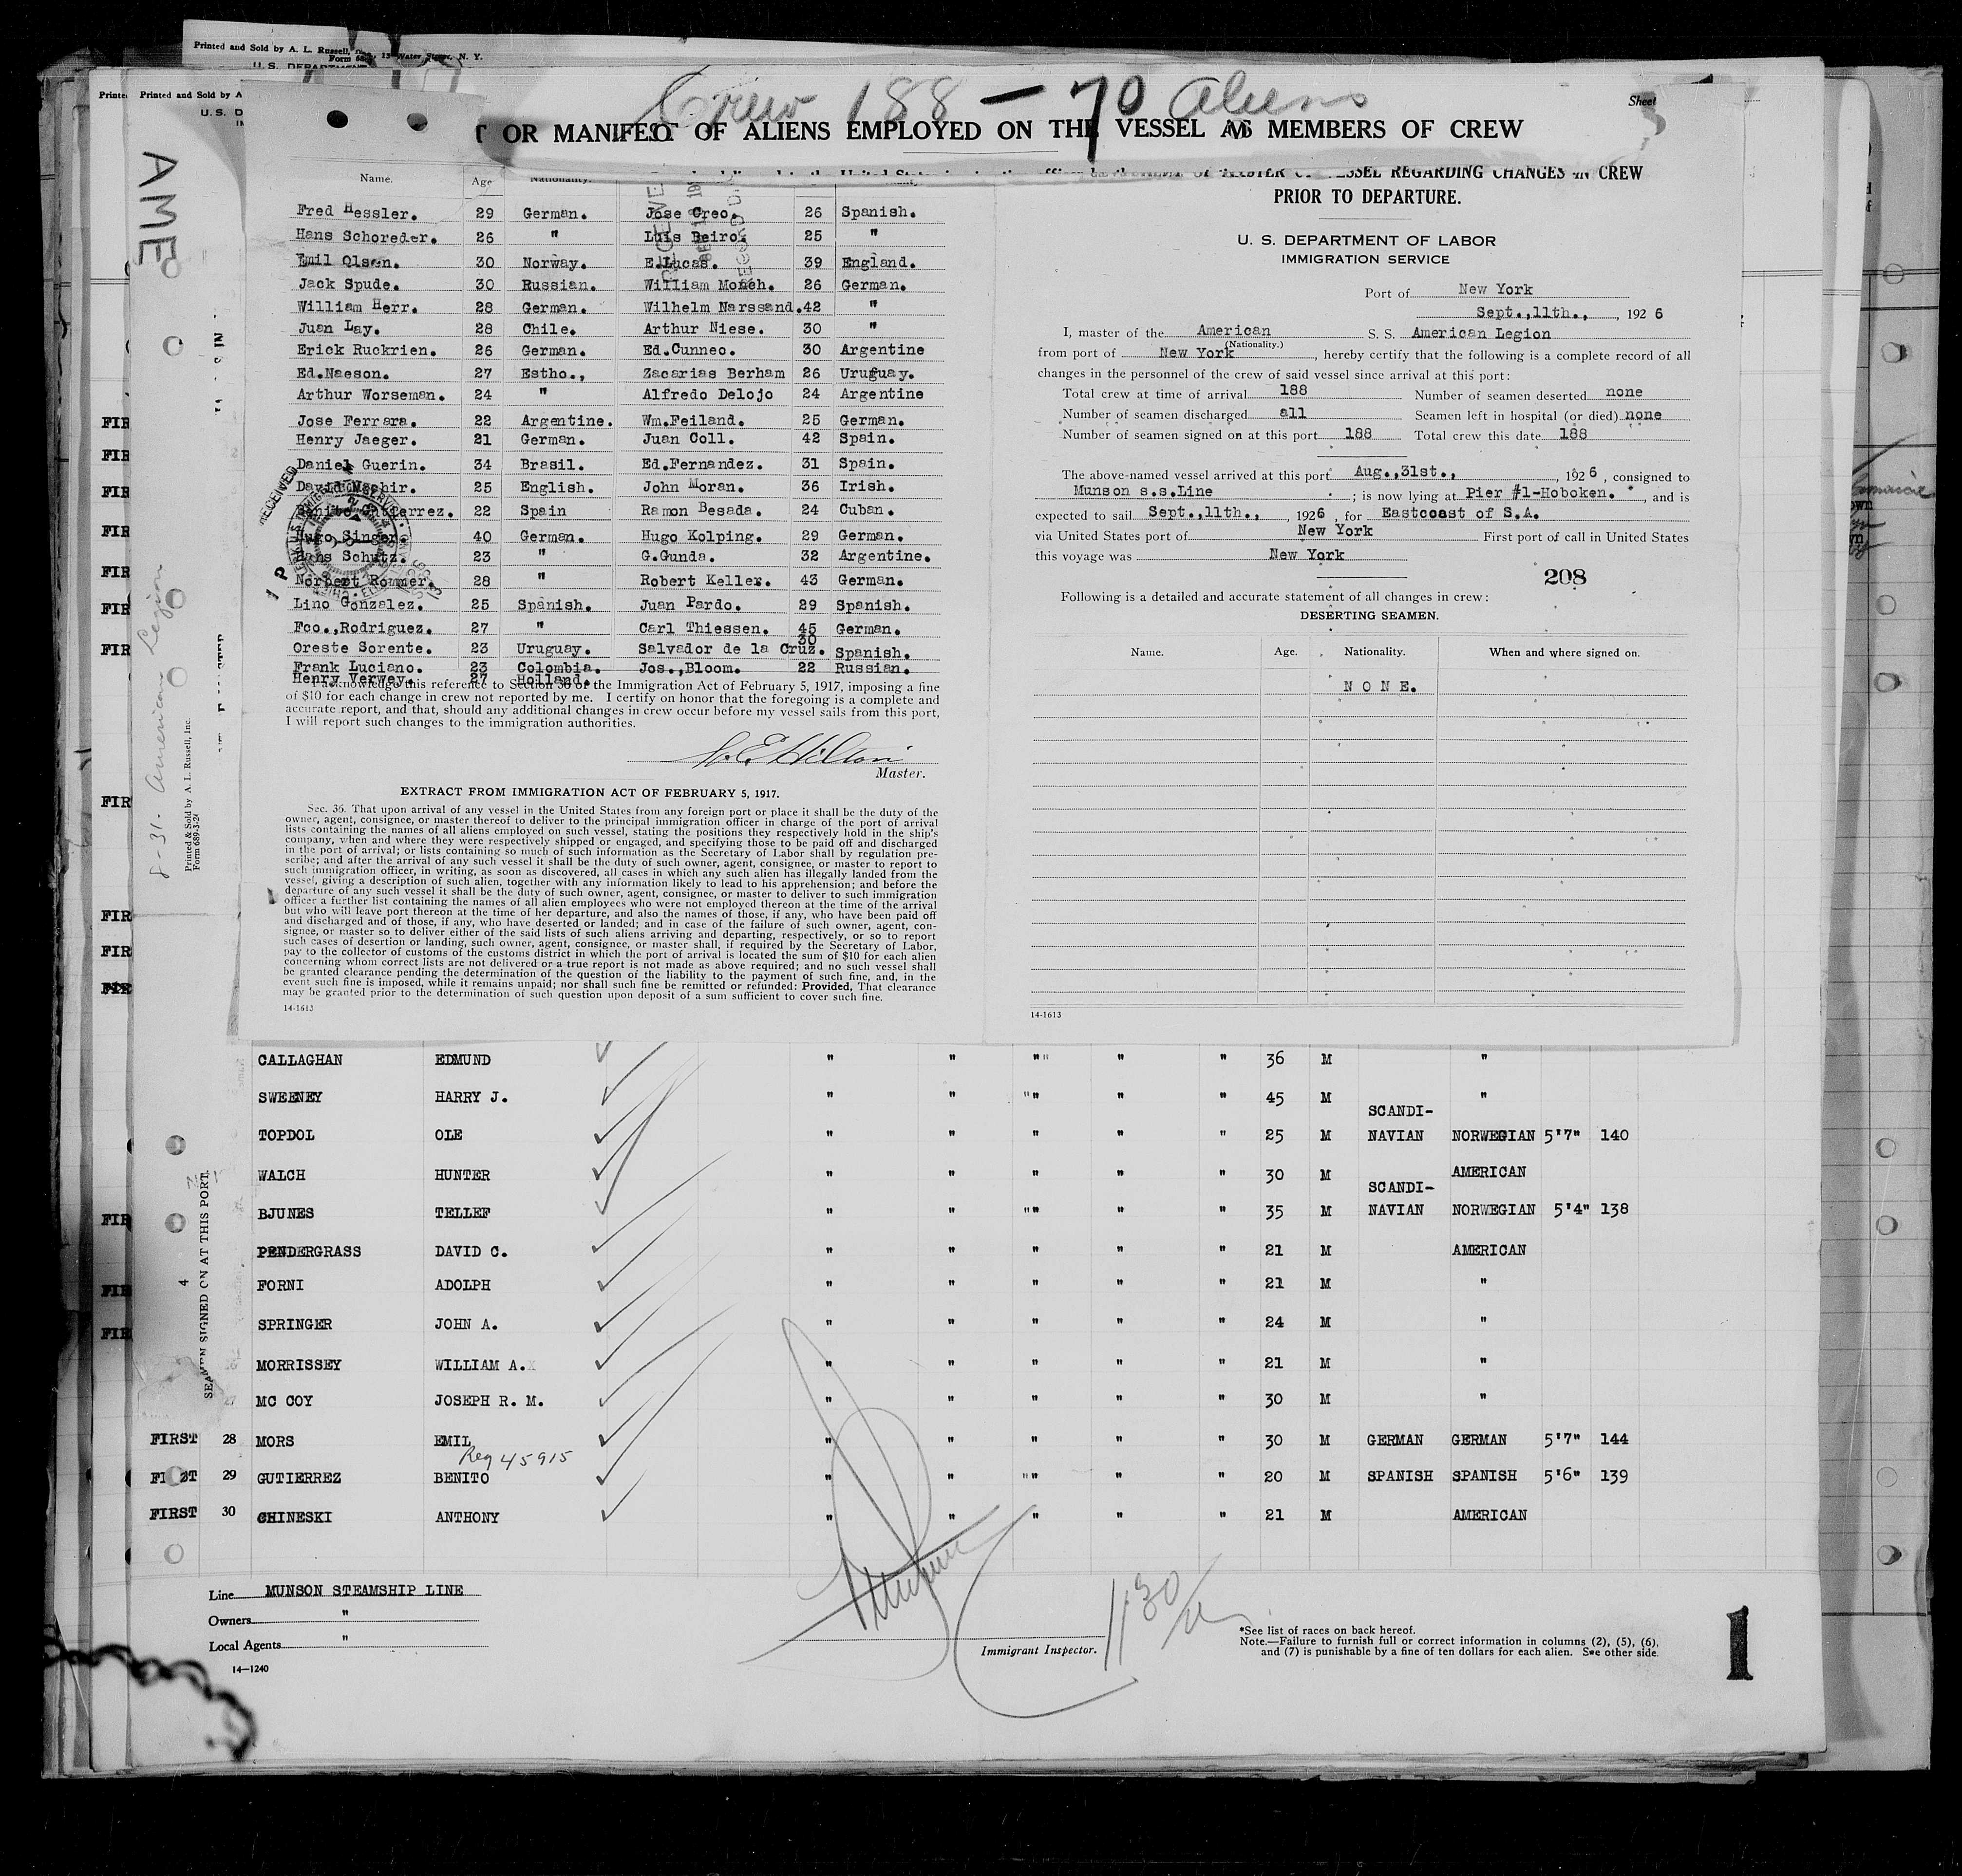 Printed and Sold by A. L. Russell,
Water Street, N. Y.
U. S. DEPARTMENT
Printed and Sold by A
U. S. D
Crew 188 — 70 Aliens
Sheet
OR MANIFEST OF ALIENS EMPLOYED ON THE VESSEL AS MEMBERS OF CREW
AME
8-31- American Legion
Printed & Sold by A. L. Russell, Inc.
Form 689-3-2
SEAMEN SIGNED ON AT THIS PORT.
4
Name. Age Nationality.
Fred Hessler. 29 German. Jose Creo. 26 Spanish.
Hans Schoreder. 26 " Luis Beiro. 25 "
Emil Olsen. 30 Norway. E.Lucas. 39 England.
Jack Spude. 30 Russian. William Monch. 26 German.
William Herr. 28 German. Wilhelm Narssand. 42 "
Juan Lay. 28 Chile. Arthur Niese. 30 "
Erick Ruckrien. 26 German. Ed.Cunneo. 30 Argentine
Ed.Naeson. 27 Estho., Zacarias Berham 26 Uruguay.
Arthur Worseman. 24 " Alfredo Delojo 24 Argentine
Jose Ferrara. 22 Argentine. Wm.Feiland. 25 German.
Henry Jaeger. 21 German. Juan Coll. 42 Spain.
Daniel Guerin. 34 Brasil. Ed.Fernandez. 31 Spain.
David 25 English. John Moran. 36 Irish.
Benito Gutierrez. 22 Spain Ramon Besada. 24 Cuban.
Hugo Singer. 40 German. Hugo Kolping. 29 German.
Hans Schutz. 23 " G.Gunda. 32 Argentine.
Norbert Rommer. 28 " Robert Keller. 43 German.
Lino Gonzalez. 25 Spanish. Juan Pardo. 29 Spanish.
Fco.,Rodriguez. 27 " Carl Thiessen. 45 German.
Oreste Sorente. 23 Uruguay. Salvador de la Cruz. 30 Spanish.
Frank Luciano. 23 Colombia. Jos.,Bloom. 22 Russian.
Henry Verwey. 27 Holland.
I acknowledge this reference to Section 36 of the Immigration Act of February 5, 1917, imposing a fine
of $10 for each change in crew not reported by me. I certify on honor that the foregoing is a complete and
accurate report, and that, should any additional changes in crew occur before my vessel sails from this port,
I will report such changes to the immigration authorities.
Master.
EXTRACT FROM IMMIGRATION ACT OF FEBRUARY 5, 1917.
Sec. 36. That upon arrival of any vessel in the United States from any foreign port or place it shall be the duty of the
owner, agent, consignee, or master thereof to deliver to the principal immigration officer in charge of the port of arrival
lists containing the names of all aliens employed on such vessel, stating the positions they respectively hold in the ship's
company, when and where they were respectively shipped or engaged, and specifying those to be paid off and discharged
in the port of arrival; or lists containing so much of such information as the Secretary of Labor shall by regulation pre-
scribe; and after the arrival of any such vessel it shall be the duty of such owner, agent, consignee, or master to report to
such immigration officer, in writing, as soon as discovered, all cases in which any such alien has illegally landed from the
vessel, giving a description of such alien, together with any information likely to lead to his apprehension; and before the
departure of any such vessel it shall be the duty of such owner, agent, consignee, or master to deliver to such immigration
officer a further list containing the names of all alien employees who were not employed thereon at the time of the arrival
but who will leave port thereon at the time of her departure, and also the names of those, if any, who have been paid off
and discharged and of those, if any, who have deserted or landed; and in case of the failure of such owner, agent, con-
signee, or master so to deliver either of the said lists of such aliens arriving and departing, respectively, or so to report
such cases of desertion or landing, such owner, agent, consignee, or master shall, if required by the Secretary of Labor,
pay to the collector of customs of the customs district in which the port of arrival is located the sum of $10 for each alien
concerning whom correct lists are not delivered or a true report is not made as above required; and no such vessel shall
be granted clearance pending the determination of the question of the liability to the payment of such fine, and, in the
event such fine is imposed, while it remains unpaid; nor shall such fine be remitted or refunded: Provided, That clearance
may be granted prior to the determination of such question upon deposit of a sum sufficient to cover such fine.
14-1613
OF MASTER OF VESSEL REGARDING CHANGES IN CREW
PRIOR TO DEPARTURE.
U. S. DEPARTMENT OF LABOR
IMMIGRATION SERVICE
Port of New York
Sept.,11th., 1926
I, master of the American S. S. American Legion
(Nationality.)
from port of New York, hereby certify that the following is a complete record of all
changes in the personnel of the crew of said vessel since arrival at this port:
Total crew at time of arrival 188 Number of seamen deserted none
Number of seamen discharged all Seamen left in hospital (or died) none
Number of seamen signed on at this port 188 Total crew this date 188
The above-named vessel arrived at this port Aug.,31st., 1926, consigned to
Munson s.s.Line ; is now lying at Pier #1-Hoboken. , and is
expected to sail Sept.,11th., 1926, for Eastcoast of S.A.
via United States port of New York First port of call in United States
this voyage was New York
208
Following is a detailed and accurate statement of all changes in crew:
DESERTING SEAMEN.
Name. Age. Nationality. When and where signed on.
N O N E.
14-1613
CALLAGHAN EDMUND " " "" " " 36 M "
SWEENEY HARRY J. " " "" " " 45 M "
TOPDOL OLE " " " " " 25 M SCANDI-NAVIAN NORWEGIAN 5'7" 140
WALCH HUNTER " " " " " 30 M AMERICAN
BJUNES TELLEF " " "" " " 35 M SCANDI-NAVIAN NORWEGIAN 5'4" 138
PENDERGRASS DAVID C. " " " " " 21 M AMERICAN
FORNI ADOLPH " " " " " 21 M "
SPRINGER JOHN A. " " " " " 24 M "
MORRISSEY WILLIAM A. " " " " " 21 M "
27 MC COY JOSEPH R. M. " " " " " 30 M "
FIRST 28 MORS EMIL " " " " " 30 M GERMAN GERMAN 5'7" 144
Reg 45915
FIRST 29 GUTIERREZ BENITO " " "" " " 20 M SPANISH SPANISH 5'6" 139
FIRST 30 CHINESKI ANTHONY " " " " " 21 M AMERICAN
Line MUNSON STEAMSHIP LINE
Owners "
Local Agents "
14—1240
Immigrant Inspector.
1130
*See list of races on back hereof.
Note.—Failure to furnish full or correct information in columns (2), (5), (6),
and (7) is punishable by a fine of ten dollars for each alien. See other side.
1